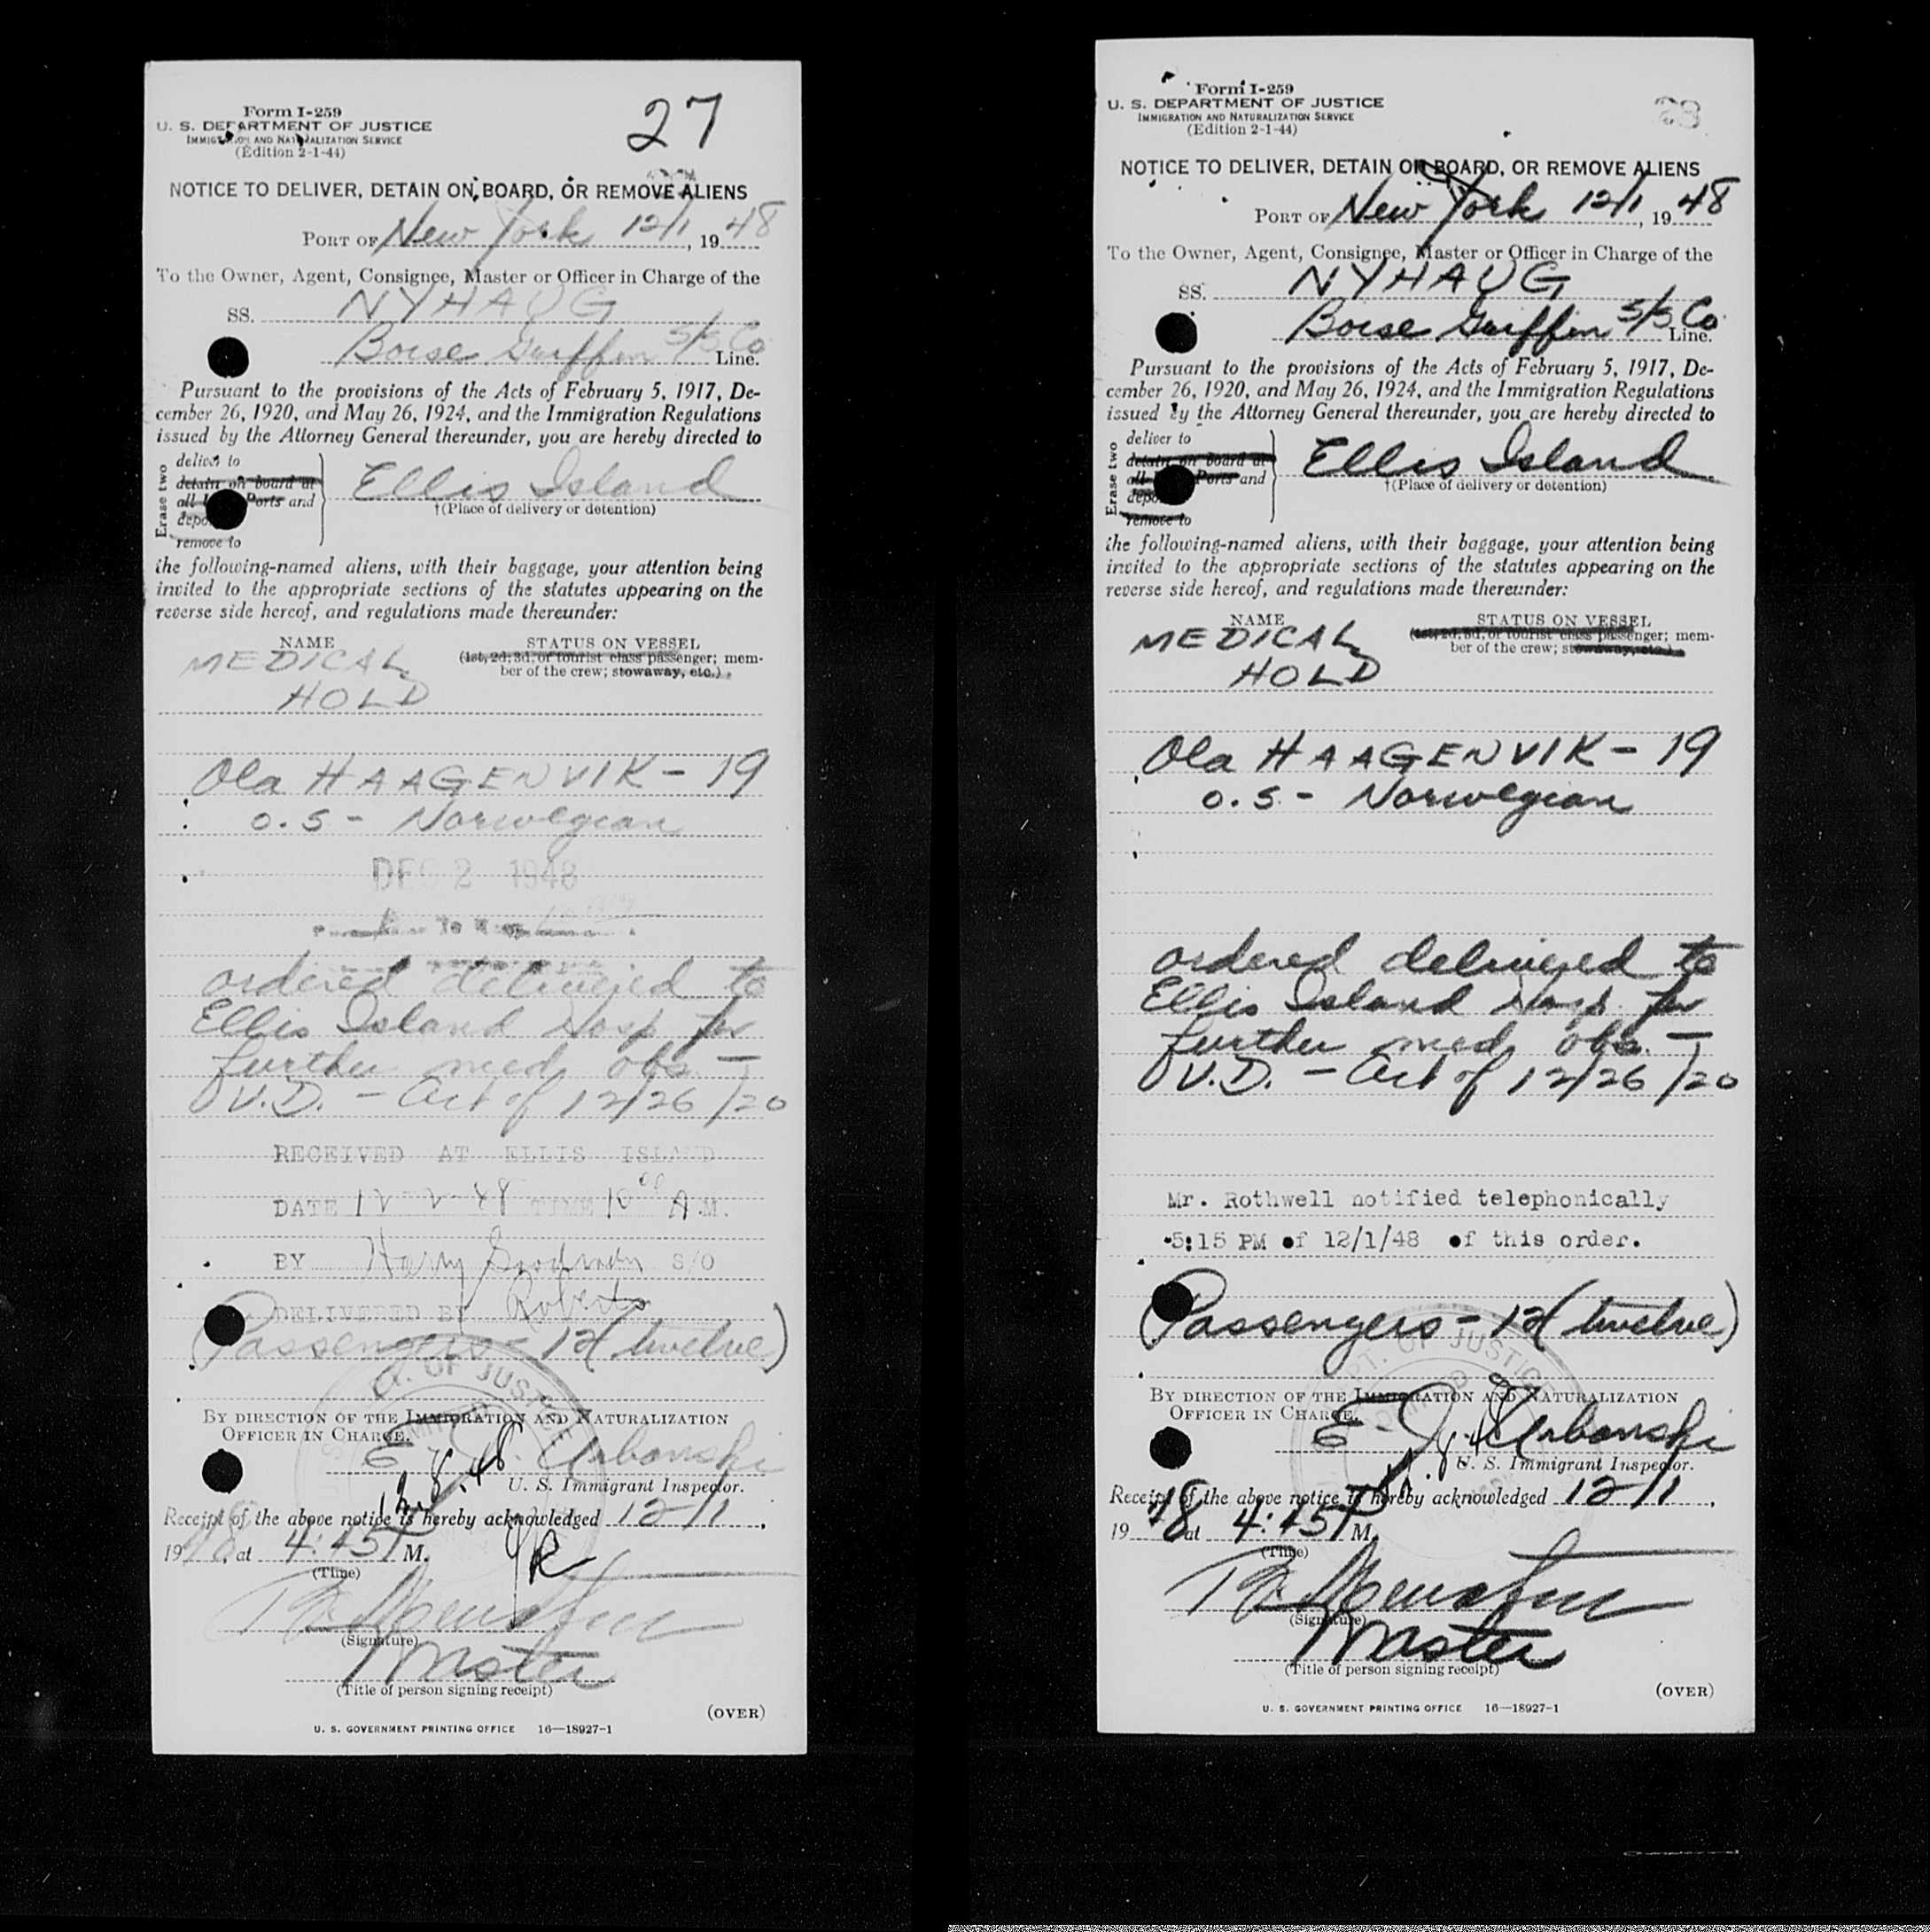 Form I-259
U. S. DEPARTMENT OF JUSTICE
IMMIGRATION AND NATURALIZATION SERVICE
(Edition 2-1-44)
27
NOTICE TO DELIVER, DETAIN ON BOARD, OR REMOVE ALIENS
PORT OF New York 12/1, 1948
To the Owner, Agent, Consignee, Master or Officer in Charge of the
SS. NYHAUG
Boise Griffin S/S Co Line.
Pursuant to the provisions of the Acts of February 5, 1917, De-
cember 26, 1920, and May 26, 1924, and the Immigration Regulations
issued by the Attorney General thereunder, you are hereby directed to
Erase two
deliver to
detain on board at
all Ports and
remove to
Ellis Island
†(Place of delivery or detention)
the following-named aliens, with their baggage, your attention being
invited to the appropriate sections of the statutes appearing on the
reverse side hereof, and regulations made thereunder:
NAME
STATUS ON VESSEL
(1st, 2d, 3d, or tourist class passenger; mem-
ber of the crew; stowaway, etc.)
MEDICAL
HOLD
Ola HAAGENVIK - 19
o.s - Norwegian
DEC 2 1948
ordered delivered to
Ellis Island Hosp for
further med obs -
V.D. - Act of 12/26/20
RECEIVED AT ELLIS ISLAND
DATE 12-2-48 TIME 10 00 A.M.
BY Harry Goodman S/O
DELIVERED BY Roberts
(Passengers - 12 (twelve)
BY DIRECTION OF THE IMMIGRATION AND NATURALIZATION
OFFICER IN CHARGE.
E. J. Urbanski
U. S. Immigrant Inspector.
12.8.48
Receipt of the above notice is hereby acknowledged 12/1,
1948, at 4:45 P M.
(Time)
(Signature)
Master
(Title of person signing receipt)
(OVER)
U. S. GOVERNMENT PRINTING OFFICE 16—18927-1
Form I-259
U. S. DEPARTMENT OF JUSTICE
IMMIGRATION AND NATURALIZATION SERVICE
(Edition 2-1-44)
28
NOTICE TO DELIVER, DETAIN ON BOARD, OR REMOVE ALIENS
PORT OF New York 12/1, 1948
To the Owner, Agent, Consignee, Master or Officer in Charge of the
SS. NYHAUG
Boise Griffin S/S Co Line.
Pursuant to the provisions of the Acts of February 5, 1917, De-
cember 26, 1920, and May 26, 1924, and the Immigration Regulations
issued by the Attorney General thereunder, you are hereby directed to
Erase two
deliver to
detain on board at
all Ports and
remove to
Ellis Island
†(Place of delivery or detention)
the following-named aliens, with their baggage, your attention being
invited to the appropriate sections of the statutes appearing on the
reverse side hereof, and regulations made thereunder:
NAME
STATUS ON VESSEL
(1st, 2d, 3d, or tourist class passenger; mem-
ber of the crew; stowaway, etc.)
MEDICAL
HOLD
Ola HAAGENVIK - 19
o.s. - Norwegian
ordered delivered to
Ellis Island Hosp. for
further med obs. -
V.D. - Act of 12/26/20
Mr. Rothwell notified telephonically
5:15 PM of 12/1/48 of this order.
(Passengers - 12 (twelve)
BY DIRECTION OF THE IMMIGRATION AND NATURALIZATION
OFFICER IN CHARGE.
E. J. Urbanski
U. S. Immigrant Inspector.
Receipt of the above notice is hereby acknowledged 12/1,
1948 at 4:45 P M.
(Time)
(Signature)
Master
(Title of person signing receipt)
(OVER)
U. S. GOVERNMENT PRINTING OFFICE 16—18927-1